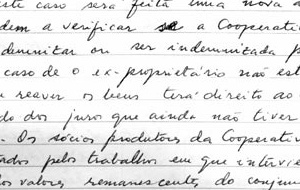 este caso será feita uma nova a
dem a verificar se a Cooperati
demnizar ou ser indemnizada p
caso de o ex-proprietário não est
reaver os bens terá direito ao
do dos juros que ainda não tiver
. Os sócios produtores da Cooperativ
ados pelos trabalhos em que intervie
los valores remanescentes do conjun